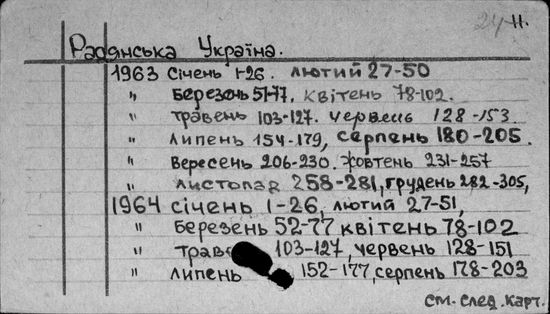 24 11.
Радянська Україна.
1963 Січень 1-26. лютий 27-50
" березень 51-77. квітень 78-102.
" травень 103-127. червень 128-153.
" липень 154-179, серпень 180-205.
" вересень 206-230. жовтень 231-257
" листопад 258-281, грудень 282-305,
1964 січень 1-26, лютий 27-51,
" березень 52-77 квітень 78-102
" трав 103-127, червень 128-151
" липень 152-177, серпень 178-203
см. след. карт.